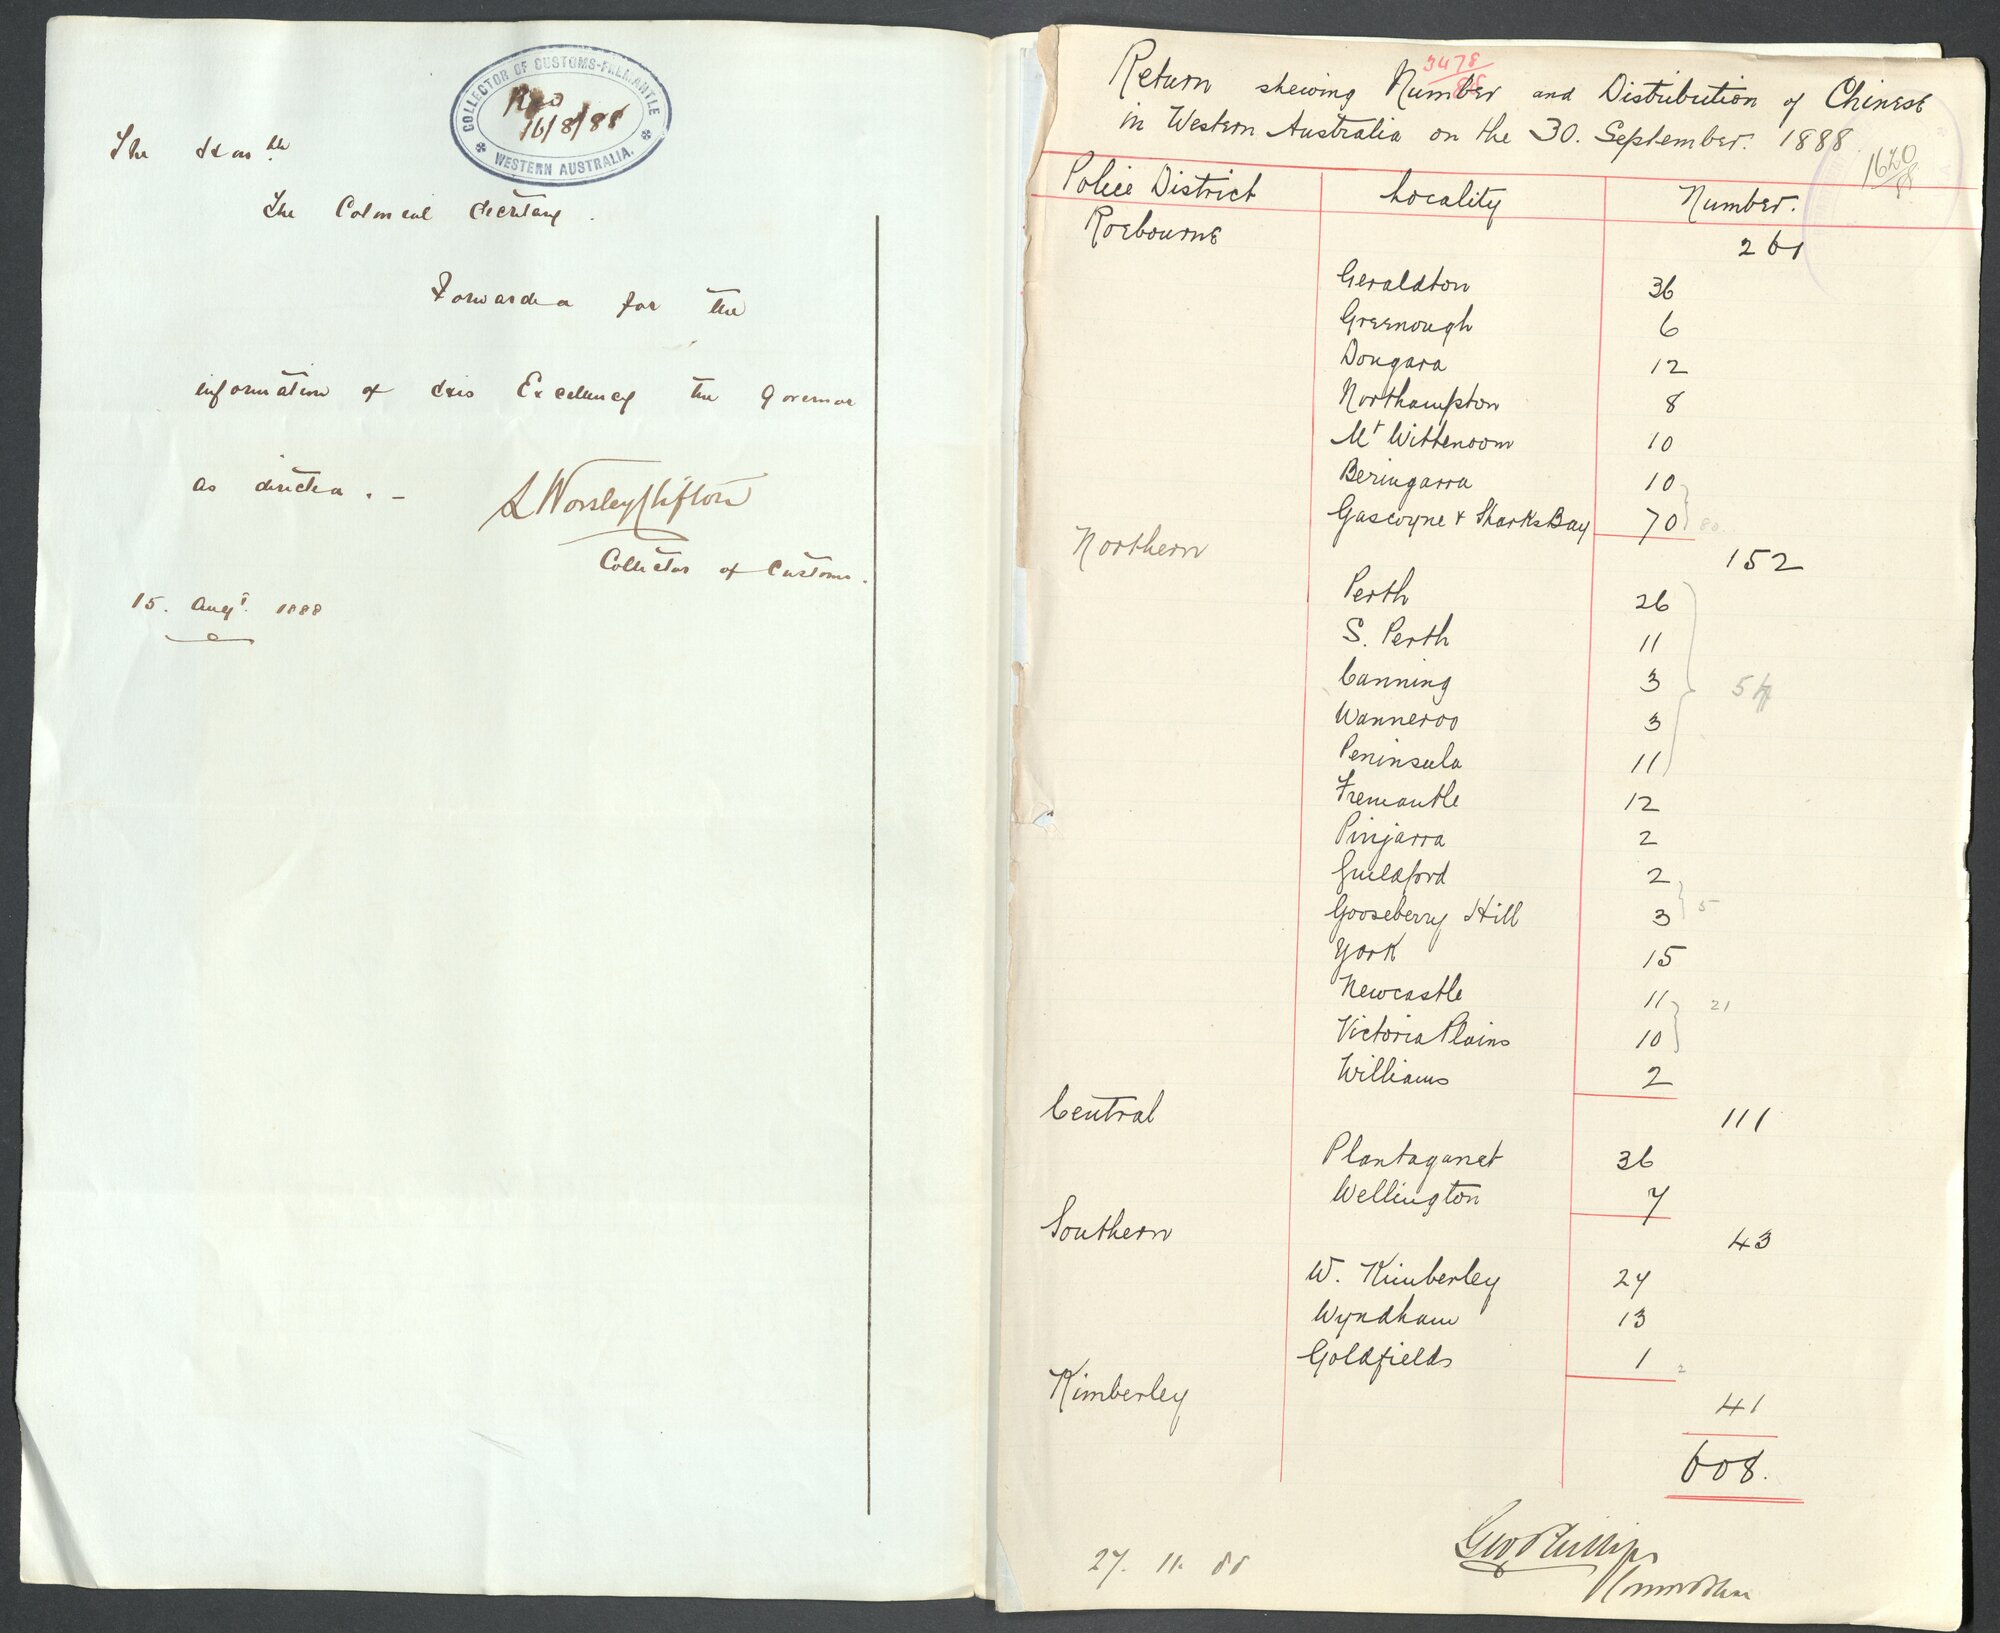 COLLECTOR OF CUSTOMS-FREMANTLE
Recd
16/8/88
WESTERN AUSTRALIA.
The Honble
The Colonial Secretary.
Forwarded for the
information of His Excellency the Governor
as directed. –
L Worsley Clifton
Collector of Customs.
15. Augt. 1888
3478/88
Return shewing Number and Distribution of Chinese
in Western Australia on the 30. September. 1888
1620/88
Police District Locality Number.
Roebourne 261
Geraldton 36
Greenough 6
Dongara 12
Northampton 8
Mt Wittenoom 10
Beringarra 10
Gascoyne & Sharks Bay 70 80
Northern 152
Perth 26
S. Perth 11
Canning 3 54
Wanneroo 3
Peninsula 11
Fremantle 12
Pinjarra 2
Guildford 2
Gooseberry Hill 3 5
York 15
Newcastle 11 21
Victoria Plains 10
Williams 2
Central 111
Plantaganet 36
Wellington 7
Southern 43
W. Kimberley 27
Wyndham 13
Goldfields 1 2
Kimberley 41
608.
Geo Phillips
27. 11. 88